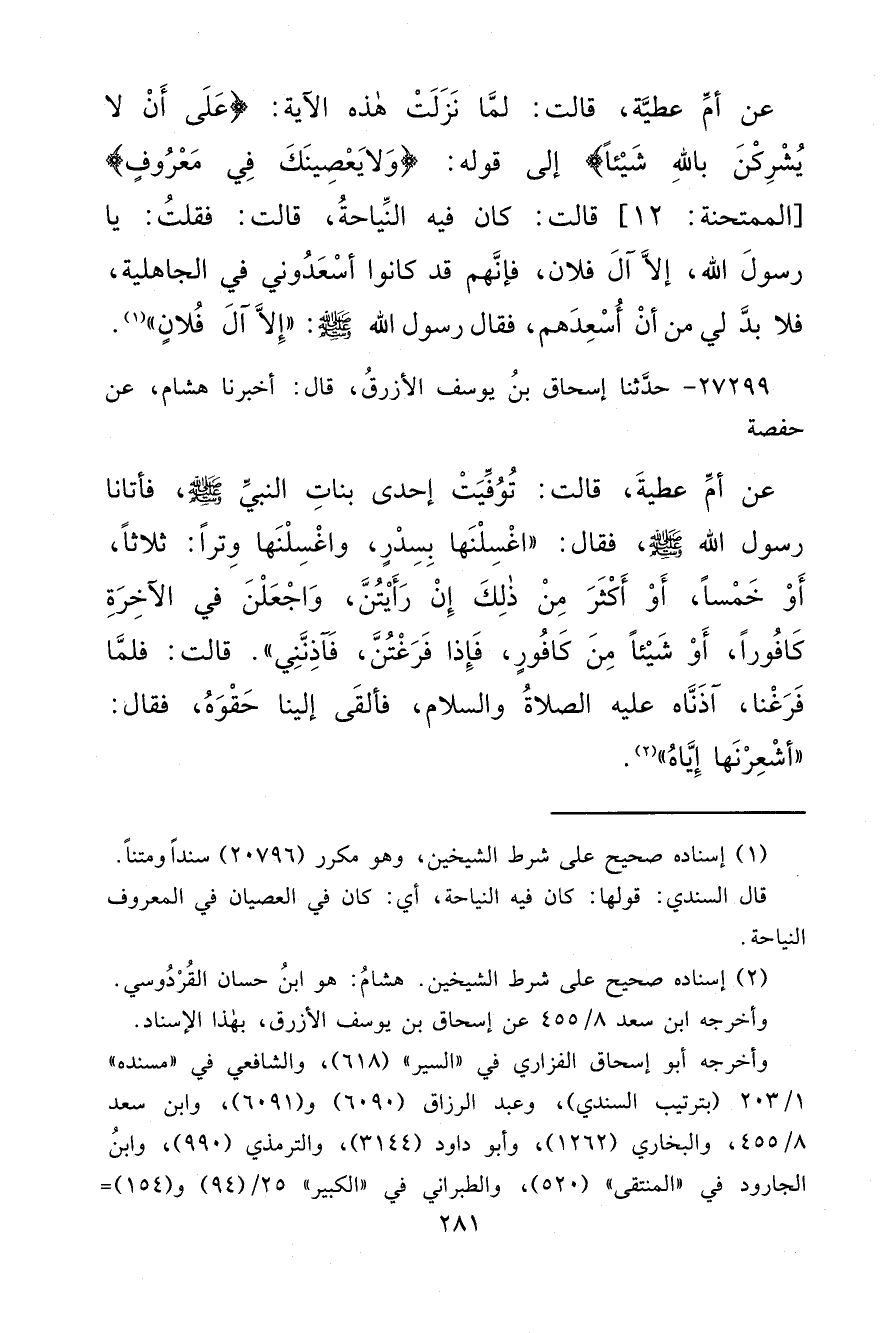 عن أمِّ عطيَّة، قالت: لمَّا نَزَلَتْ هٰذه الآية: ﴿عَلَى أَنْ لا
يُشْرِكْنَ باللهِ شَيْئاً﴾ إلى قوله: ﴿وَلايَعْصِينَكَ فِي مَعْرُوفٍ﴾
[الممتحنة: ١٢] قالت: كان فيه النِّياحةُ، قالت: فقلتُ: يا
رسولَ الله، إلاَّ آلَ فلان، فإنَّهم قد كانوا أسْعَدُوني في الجاهلية،
فلا بدَّ لي من أنْ أُسْعِدَهم، فقال رسول الله ﷺ: «إِلاَّ آلَ فُلانٍ»(١).
٢٧٢٩٩- حدَّثنا إسحاق بنُ يوسف الأزرقُ، قال: أخبرنا هشام، عن
حفصة
عن أمِّ عطيةَ، قالت: تُوُفِّيَتْ إحدى بناتِ النبيِّ ﷺ، فأتانا
رسول الله ﷺ، فقال: «اغْسِلْنَها بِسِدْرٍ، واغْسِلْنَها وِتراً: ثلاثاً،
أَوْ خَمْساً، أَوْ أَكْثَرَ مِنْ ذٰلِكَ إِنْ رَأَيْتُنَّ، وَاجْعَلْنَ في الآخِرَةِ
كَافُوراً، أَوْ شَيْئاً مِنَ كَافُورٍ، فَإِذا فَرَغْتُنَّ، فَآذِنَّنِي». قالت: فلمَّا
فَرَغْنا، آذَنَّاه عليه الصلاةُ والسلام، فألقَى إلينا حَقْوَهُ، فقال:
«أشْعِرْنَها إِيَّاهُ»(٢).
(١) إسناده صحيح على شرط الشيخين، وهو مكرر (٢٠٧٩٦) سنداً ومتناً.
قال السندي: قولها: كان فيه النياحة، أي: كان في العصيان في المعروف
النياحة.
(٢) إسناده صحيح على شرط الشيخين. هشامُ: هو ابنُ حسان القُرْدُوسي.
وأخرجه ابن سعد ٤٥٥/٨ عن إسحاق بن يوسف الأزرق، بهٰذا الإسناد.
وأخرجه أبو إسحاق الفزاري في «السير» (٦١٨)، والشافعي في «مسنده»
٢٠٣/١ (بترتيب السندي)، وعبد الرزاق (٦٠٩٠) و(٦٠٩١)، وابن سعد
٤٥٥/٨، والبخاري (١٢٦٢)، وأبو داود (٣١٤٤)، والترمذي (٩٩٠)، وابنُ
الجارود في «المنتقى» (٥٢٠)، والطبراني في «الكبير» ٢٥/(٩٤) و(١٥٤)=
٢٨١